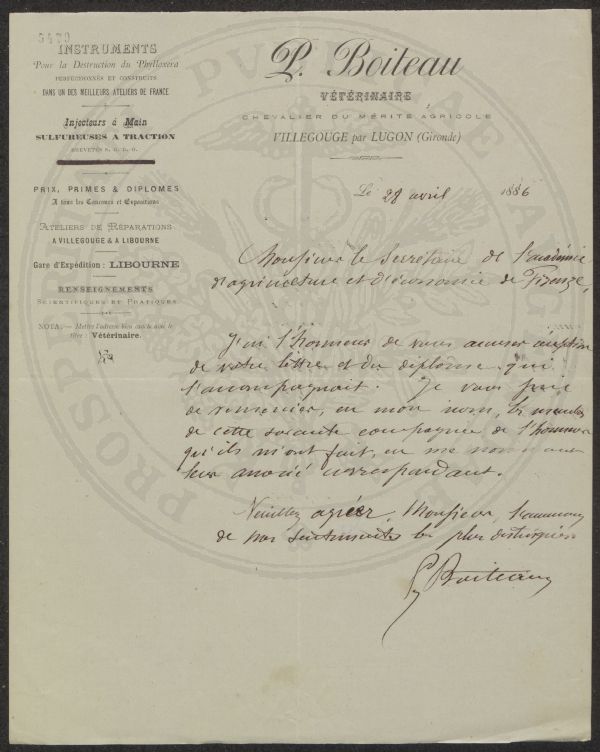 5479
INSTRUMENTS
Pour la Destruction du Phylloxéra
PERFECTIONNÉS ET CONSTRUITS
DANS UN DES MEILLEURS ATELIERS DE FRANCE
Injecteurs à Main
SULFUREUSES A TRACTION
BREVETÉS S. G. D. G.
PRIX, PRIMES & DIPLOMES
A tous les Concours et Expositions
ATELIERS DE RÉPARATIONS
A VILLEGOUGE & A LIBOURNE
Gare d'Expédition : LIBOURNE
RENSEIGNEMENTS
SCIENTIFIQUES ET PRATIQUES
NOTA. — Mettre l'adresse bien avec le titre : Vétérinaire.
P. Boiteau
VÉTÉRINAIRE
CHEVALIER DU MÉRITE AGRICOLE
VILLEGOUGE par LUGON (Gironde)
Le 28 avril 1886
Monsieur le Secrétaire de l'académie
d'agriculture et d'économie de Firenze,
J'ai l'honneur de vous accuser réception
de votre lettre et du diplôme qui
l'accompagnait. Je vous prie
de remercier, en mon nom, les membres
de cette savante compagnie de l'honneur
qu'ils m'ont fait, en me nommant
leur associé correspondant.
Veuillez agréer, Monsieur, l'assurance
de mes sentiments les plus distingués
P. Boiteau
PROSPERITATI PUBLICAE A